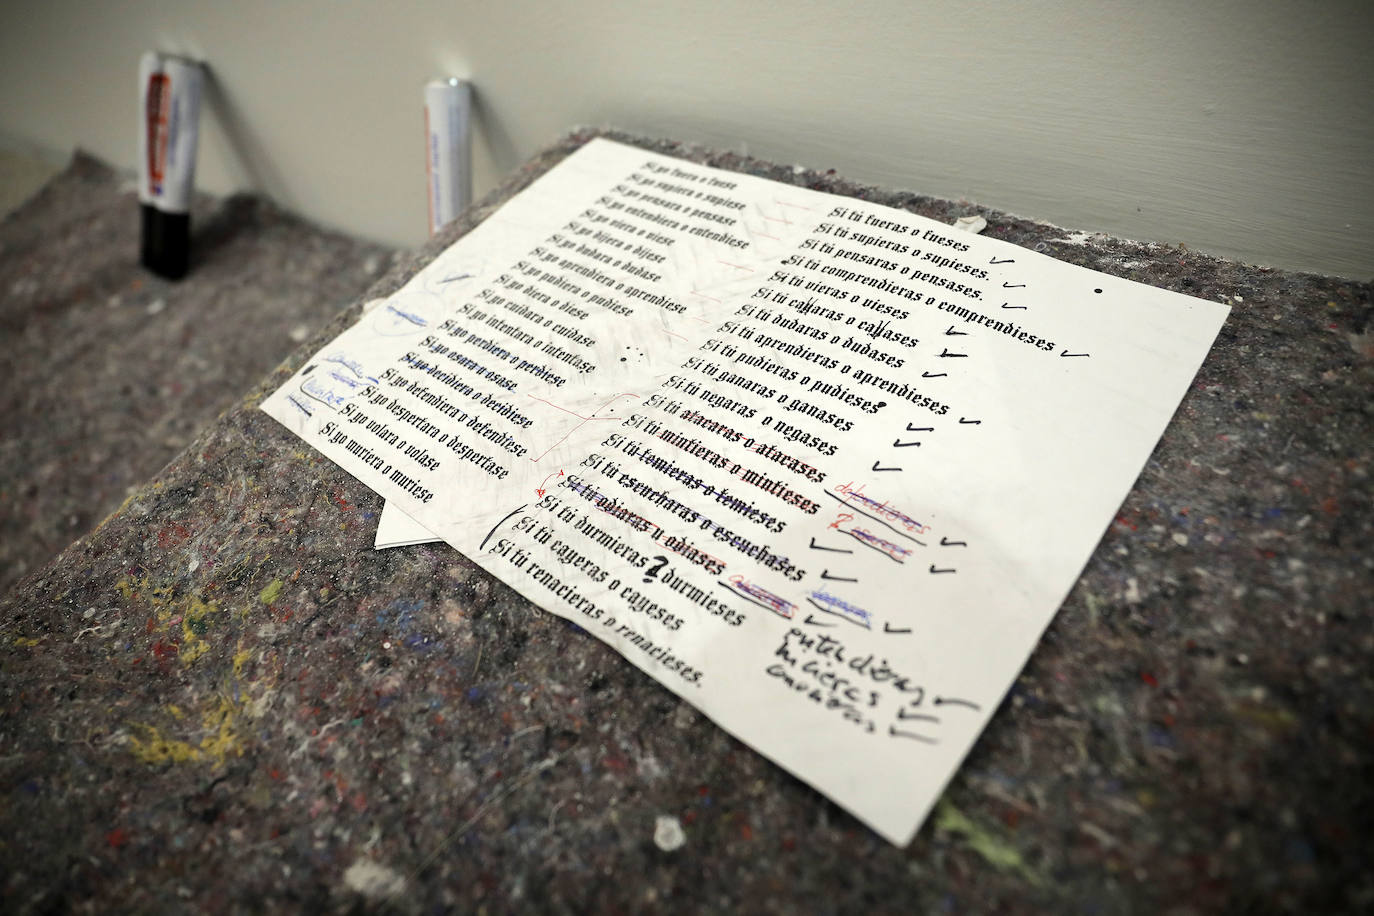 Si yo fuera o fuese
Si yo supiera o supiese
Si yo pensara o pensase
Si yo entendiera o entendiese
Si yo viera o viese
Si yo dijera o dijese
Si yo dudara o dudase
Si yo aprendiera o aprendiese
Si yo pudiera o pudiese
Si yo diera o diese
Si yo cuidara o cuidase
Si yo intentara o intentase
Si yo perdiera o perdiese
Si yo osara u osase
Si yo decidiera o decidiese
Si yo defendiera o defendiese
Si yo despertara o despertase
Si yo volara o volase
Si yo muriera o muriese
Si tú fueras o fueses
Si tú supieras o supieses.
Si tú pensaras o pensases.
Si tú comprendieras o comprendieses
Si tú vieras o vieses
Si tú callaras o callases
Si tú dudaras o dudases
Si tú aprendieras o aprendieses
Si tú pudieras o pudieses
Si tú ganaras o ganases
Si tú negaras o negases
Si tú atacaras o atacases
Si tú mintieras o mintieses
Si tú temieras o temieses
Si tú escucharas o escuchases
Si tú odiaras u odiases
Si tú durmieras ? durmieses
Si tú cayeras o cayeses
Si tú renacieras o renacieses.